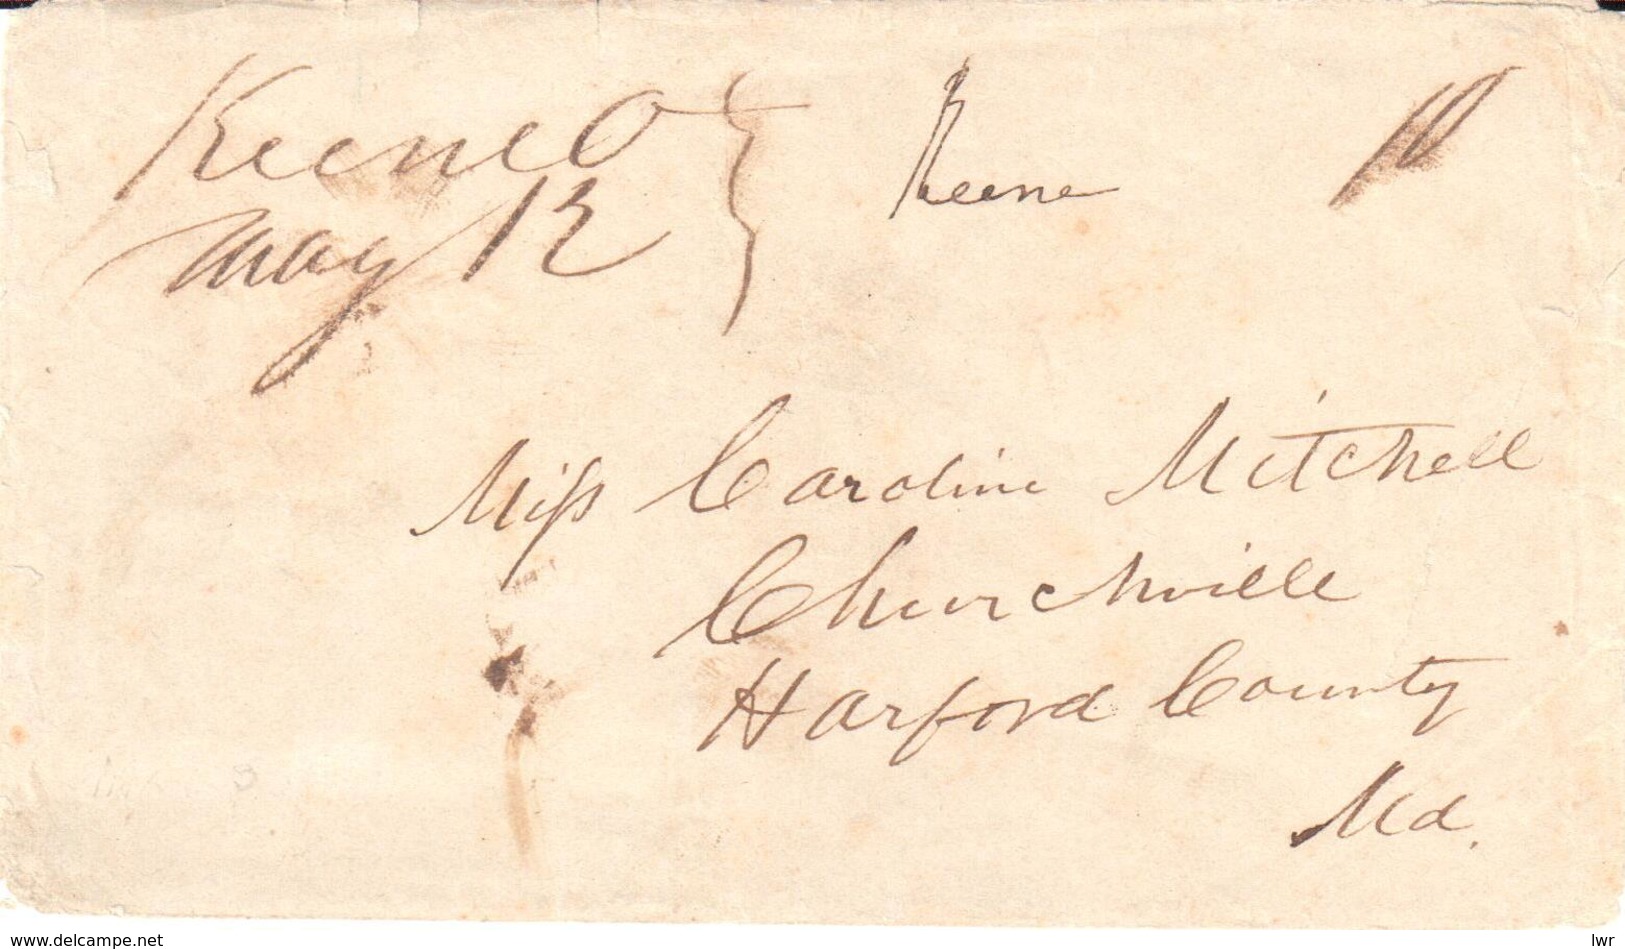 Keene O
May 12
Keene
10
Miss Caroline Mitchell
Churchville
Harford County
Md.
www.delcampe.net
lwr